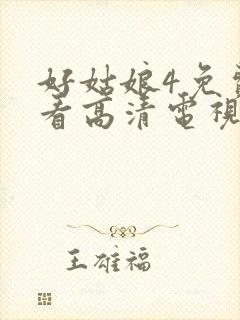 好姑娘4免
看高清電視
王雄福